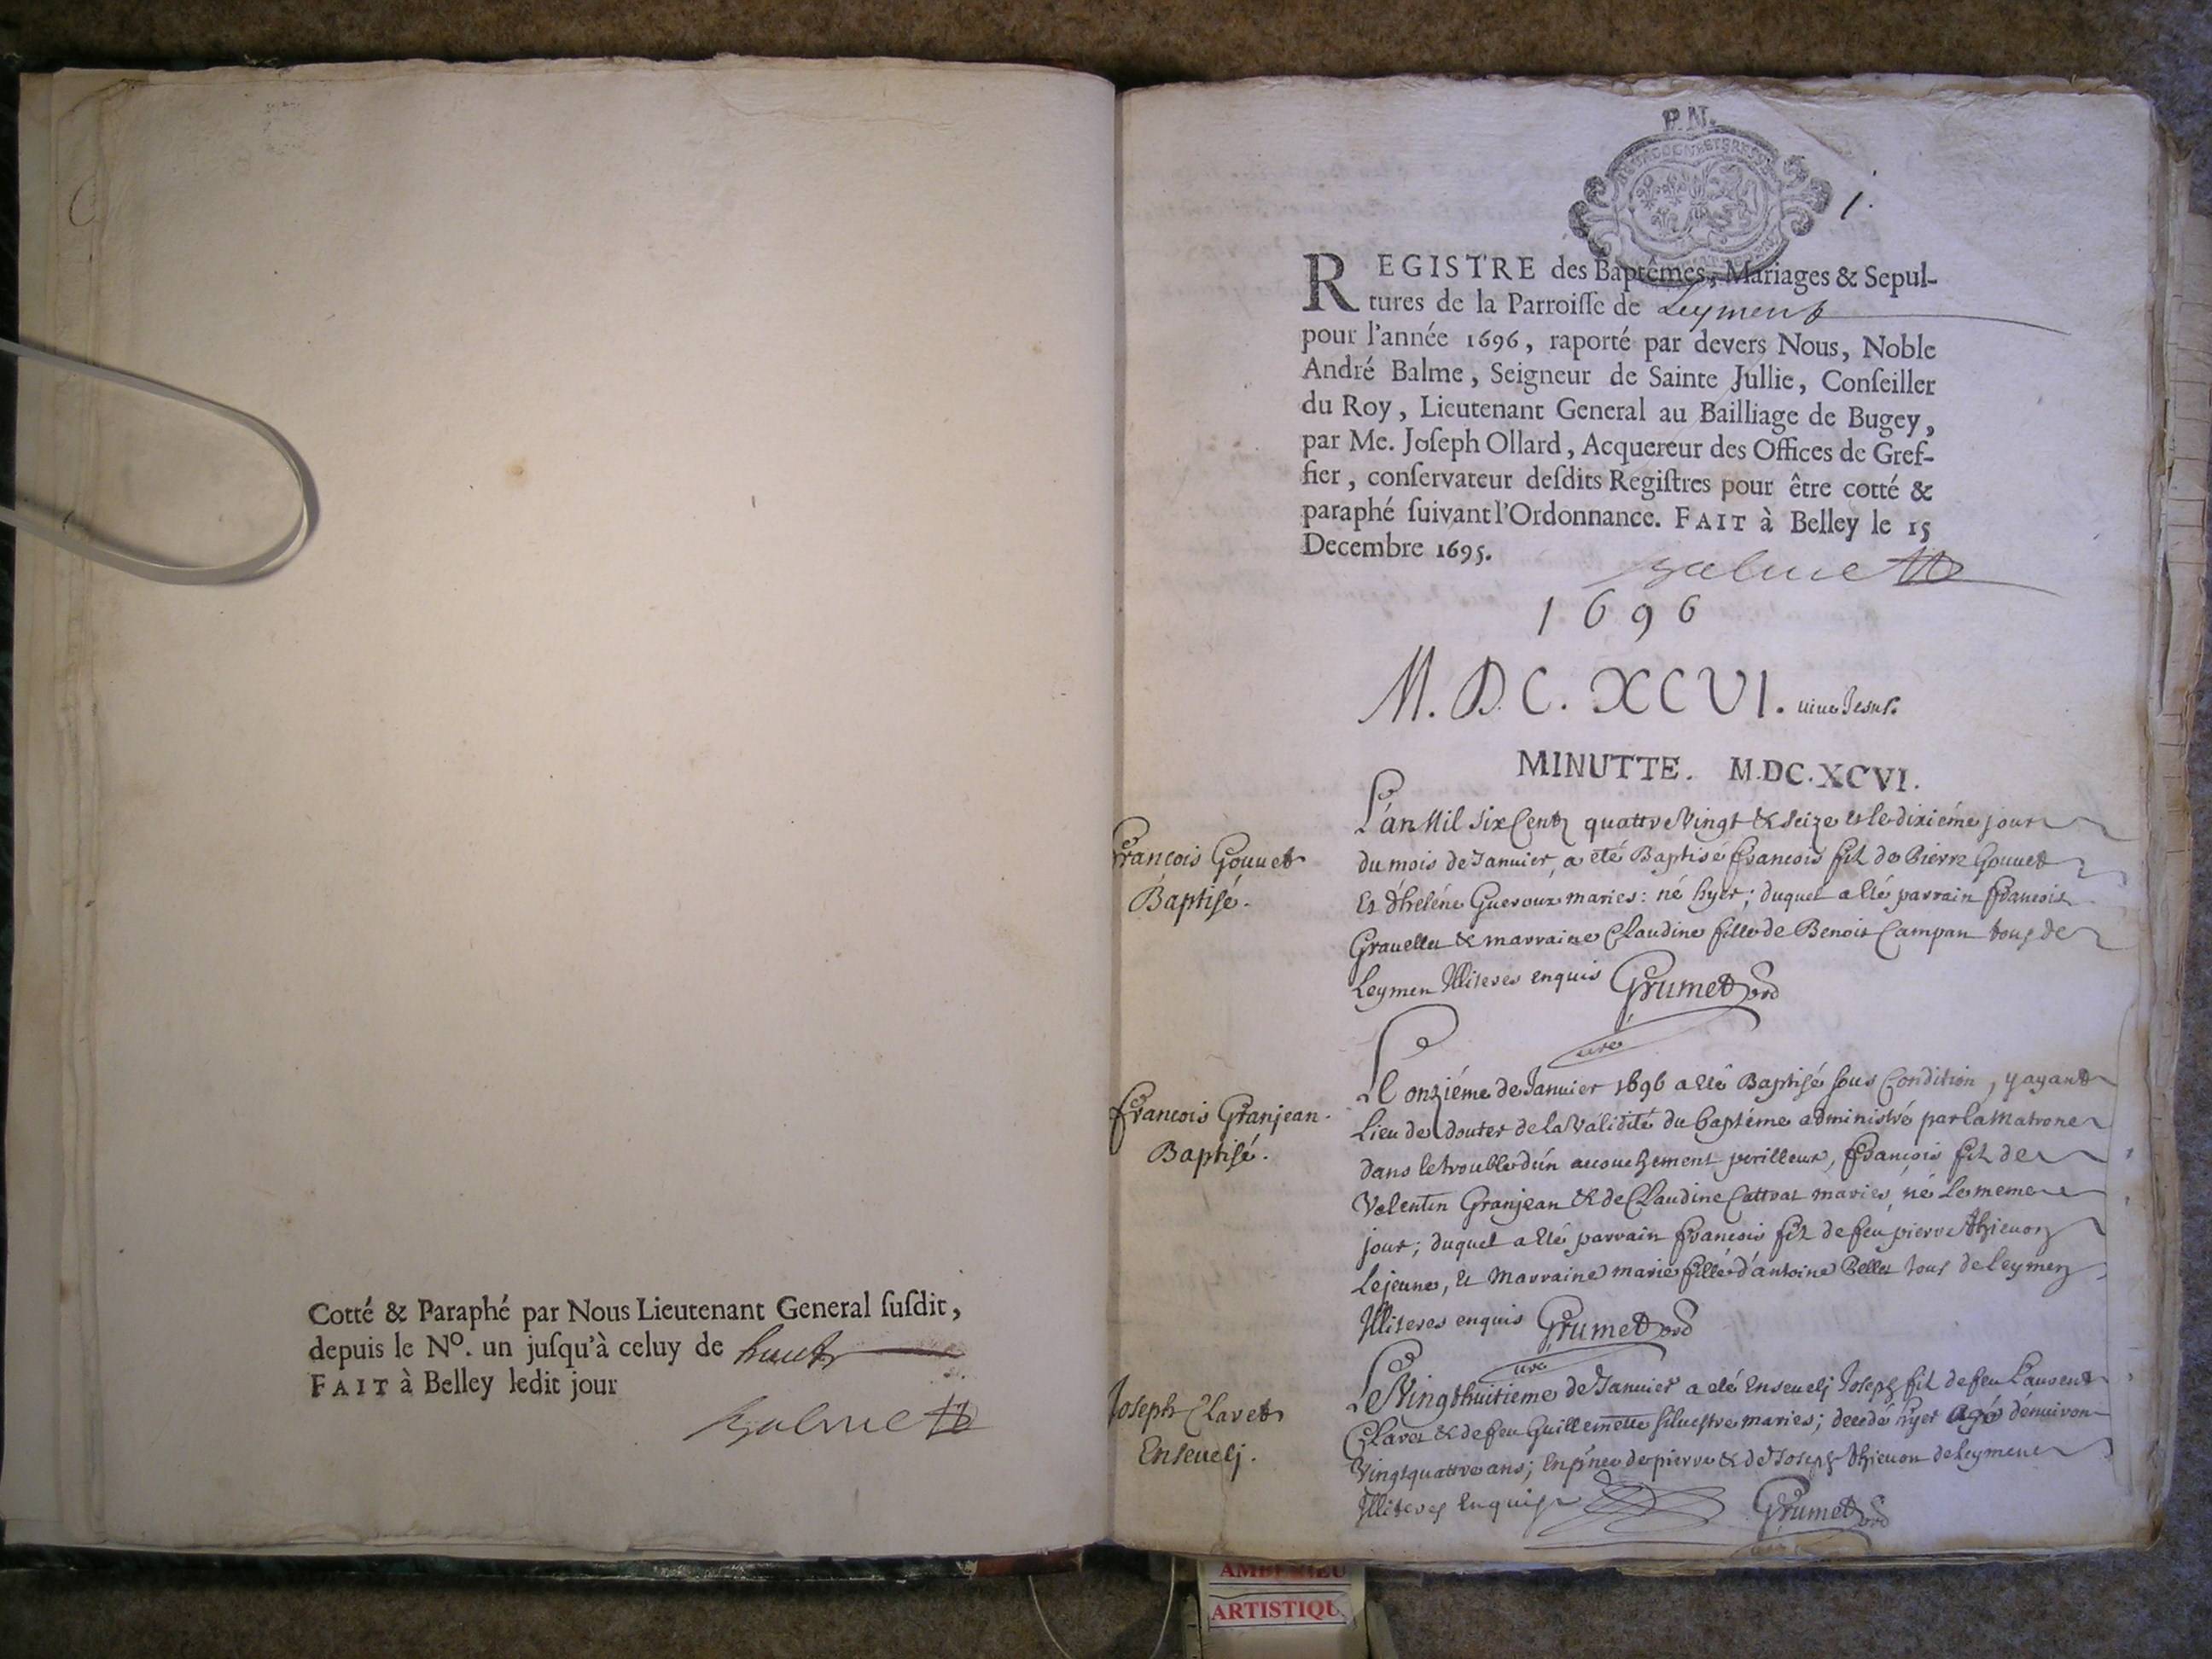 Cotté & Paraphé par Nous Lieutenant General ſuſdit,
depuis le No. un juſqu'à celuy de huict
FAIT à Belley ledit jour
Balme
P.N.
1.
REGISTRE des Baptêmes, Mariages & Sepul-
tures de la Parroiſſe de Leyment
pour l'année 1696, raporté par devers Nous, Noble
André Balme, Seigneur de Sainte Jullie, Conſeiller
du Roy, Lieutenant General au Bailliage de Bugey,
par Me. Joſeph Ollard, Acquereur des Offices de Gref-
fier, conſervateur deſdits Regiſtres pour être cotté &
paraphé ſuivant l'Ordonnance. FAIT à Belley le 15
Decembre 1695.
Balme
1696
M.D.C.XCVI. viue Jesus.
MINUTTE. M.DC.XCVI.
François Gouuet
Baptisé.
L'an Mil six Cents quattre Vingt & seize et le dixiéme jour
du mois de Januier, a eté Baptisé François fils de Pierre Gouuet
Et d'heléne Gueroux maries: né hyer; duquel a eté parrain François
Grauellet & marraine Claudine fille de Benoit Campan tous de
Leymen Illiteres enquis Grumet
curé
François Granjean
Baptisé.
Le onziéme de Januier 1696 a eté Baptisé sous Condition, y ayant
Lieu de douter de la Validité du baptéme administré par la Matrone
dans le trouble d'un acouchement perilleux, François fils de
Valentin Granjean & de Claudine Cattrat maries, né le meme
jour; duquel a eté parrain François fils de feu pierre thieuon
Le jeune, Et Marraine marie fille d'antoine Bellet tous de Leymen
Illiteres enquis Grumet
curé
Joseph Claret
Enseuelj.
Le Vingthuitieme de Januier a eté Enseuelj Joseph fils de feu Laurent
Claret & de feu Guillemette siluestre maries; decedé hyer agé d'enuiron
Vingt quattre ans; En pñce de pierre & de Joseph thieuon de Leymen
Illiteres Enquis Grumet
curé
AMBERIEU
ARTISTIQU